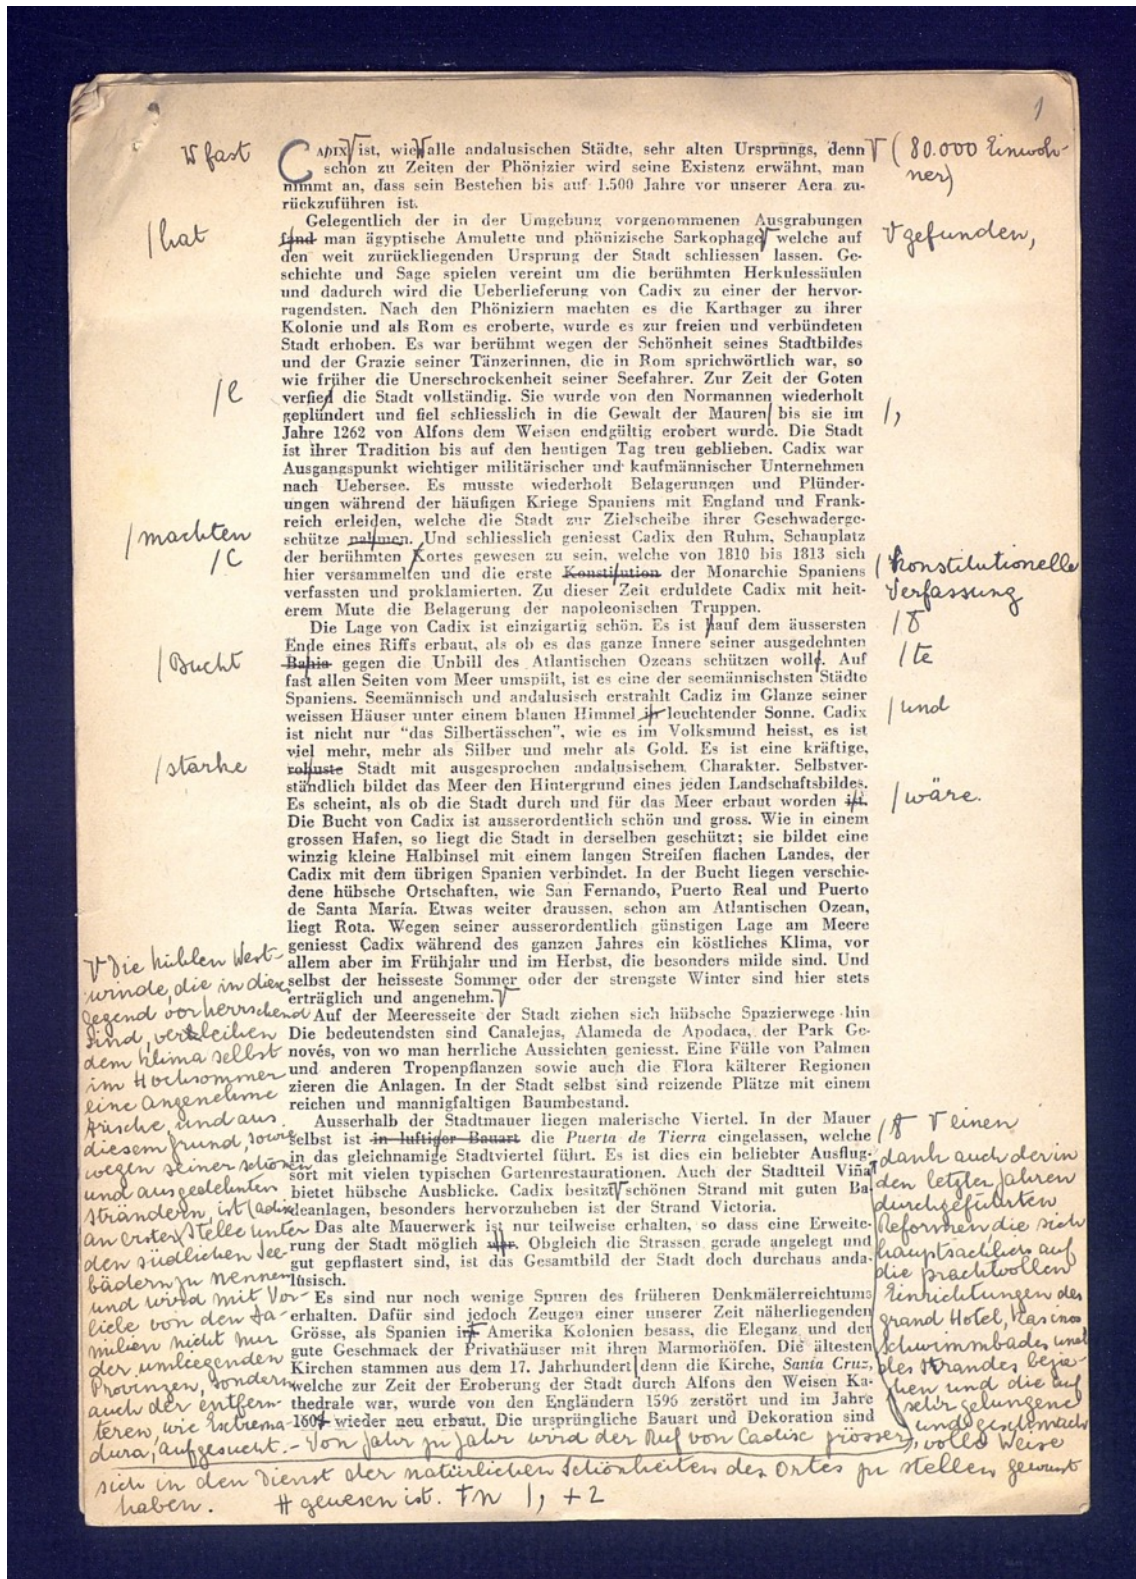 1
CADIX ist, wie alle andalusischen Städte, sehr alten Ursprungs, denn
schon zu Zeiten der Phönizier wird seine Existenz erwähnt, man
nimmt an, dass sein Bestehen bis auf 1.500 Jahre vor unserer Aera zu-
rückzuführen ist.
Gelegentlich der in der Umgebung vorgenommenen Ausgrabungen
fand man ägyptische Amulette und phönizische Sarkophage welche auf
den weit zurückliegenden Ursprung der Stadt schliessen lassen. Ge-
schichte und Sage spielen vereint um die berühmten Herkulessäulen
und dadurch wird die Ueberlieferung von Cadix zu einer der hervor-
ragendsten. Nach den Phöniziern machten es die Karthager zu ihrer
Kolonie und als Rom es eroberte, wurde es zur freien und verbündeten
Stadt erhoben. Es war berühmt wegen der Schönheit seines Stadtbildes
und der Grazie seiner Tänzerinnen, die in Rom sprichwörtlich war, so
wie früher die Unerschrockenheit seiner Seefahrer. Zur Zeit der Goten
verfied die Stadt vollständig. Sie wurde von den Normannen wiederholt
geplündert und fiel schliesslich in die Gewalt der Mauren bis sie im
Jahre 1262 von Alfons dem Weisen endgültig erobert wurde. Die Stadt
ist ihrer Tradition bis auf den heutigen Tag treu geblieben. Cadix war
Ausgangspunkt wichtiger militärischer und kaufmännischer Unternehmen
nach Uebersee. Es musste wiederholt Belagerungen und Plünder-
ungen während der häufigen Kriege Spaniens mit England und Frank-
reich erleiden, welche die Stadt zur Zielscheibe ihrer Geschwaderge-
schütze nahmen. Und schliesslich geniesst Cadix den Ruhm, Schauplatz
der berühmten Kortes gewesen zu sein, welche von 1810 bis 1813 sich
hier versammelten und die erste Konstitution der Monarchie Spaniens
verfassten und proklamierten. Zu dieser Zeit erduldete Cadix mit heit-
erem Mute die Belagerung der napoleonischen Truppen.
Die Lage von Cadix ist einzigartig schön. Es ist hauf dem äussersten
Ende eines Riffs erbaut, als ob es das ganze Innere seiner ausgedehnten
Bahia gegen die Unbill des Atlantischen Ozeans schützen wolle. Auf
fast allen Seiten vom Meer umspült, ist es eine der seemännischsten Städte
Spaniens. Seemännisch und andalusisch erstrahlt Cadiz im Glanze seiner
weissen Häuser unter einem blauen Himmel in leuchtender Sonne. Cadix
ist nicht nur “das Silbertässchen”, wie es im Volksmund heisst, es ist
viel mehr, mehr als Silber und mehr als Gold. Es ist eine kräftige,
robuste Stadt mit ausgesprochen andalusischem Charakter. Selbstver-
ständlich bildet das Meer den Hintergrund eines jeden Landschaftsbildes.
Es scheint, als ob die Stadt durch und für das Meer erbaut worden ist.
Die Bucht von Cadix ist ausserordentlich schön und gross. Wie in einem
grossen Hafen, so liegt die Stadt in derselben geschützt; sie bildet eine
winzig kleine Halbinsel mit einem langen Streifen flachen Landes, der
Cadix mit dem übrigen Spanien verbindet. In der Bucht liegen verschie-
dene hübsche Ortschaften, wie San Fernando, Puerto Real und Puerto
de Santa María. Etwas weiter draussen, schon am Atlantischen Ozean,
liegt Rota. Wegen seiner ausserordentlich günstigen Lage am Meere
geniesst Cadix während des ganzen Jahres ein köstliches Klima, vor
allem aber im Frühjahr und im Herbst, die besonders milde sind. Und
selbst der heisseste Sommer oder der strengste Winter sind hier stets
erträglich und angenehm.
Auf der Meeresseite der Stadt ziehen sich hübsche Spazierwege hin
Die bedeutendsten sind Canalejas, Alameda de Apodaca, der Park Ge-
novés, von wo man herrliche Aussichten geniesst. Eine Fülle von Palmen
und anderen Tropenpflanzen sowie auch die Flora kälterer Regionen
zieren die Anlagen. In der Stadt selbst sind reizende Plätze mit einem
reichen und mannigfaltigen Baumbestand.
Ausserhalb der Stadtmauer liegen malerische Viertel. In der Mauer
selbst ist in luftiger Bauart die Puerta de Tierra eingelassen, welche
in das gleichnamige Stadtviertel führt. Es ist dies ein beliebter Ausflug-
sort mit vielen typischen Gartenrestaurationen. Auch der Stadtteil Viña
bietet hübsche Ausblicke. Cadix besitzt schönen Strand mit guten Ba-
deanlagen, besonders hervorzuheben ist der Strand Victoria.
Das alte Mauerwerk ist nur teilweise erhalten, so dass eine Erweite-
rung der Stadt möglich war. Obgleich die Strassen gerade angelegt und
gut gepflastert sind, ist das Gesamtbild der Stadt doch durchaus anda-
lusisch.
Es sind nur noch wenige Spuren des früheren Denkmälerreichtums
erhalten. Dafür sind jedoch Zeugen einer unserer Zeit näherliegenden
Grösse, als Spanien in Amerika Kolonien besass, die Eleganz und der
gute Geschmack der Privathäuser mit ihren Marmorhöfen. Die ältesten
Kirchen stammen aus dem 17. Jahrhundert denn die Kirche, Santa Cruz,
welche zur Zeit der Eroberung der Stadt durch Alfons den Weisen Ka-
thedrale war, wurde von den Engländern 1596 zerstört und im Jahre
wieder neu erbaut. Die ursprüngliche Bauart und Dekoration sind
fast
/hat
/l
/machten
/C
/Bucht
/starke
Die kühlen West-
winde, die in dieser
Gegend vorherrschend
sind, verleihen
dem Klima selbst
im Hochsommer
eine angenehme
Frische, und aus
diesem Grund, sowie
wegen seiner schönen
und ausgedehnten
Strändern, ist Cadix
an erster Stelle unter
den südlichen See-
bädern zu nennen
und wird mit Vor-
liebe von den Fa-
milien nicht nur
der umliegenden
Provinzen, sondern
auch der entfern-
teren, wie Extrema-
dura, aufgesucht. - Von Jahr zu Jahr wird der Ruf von Cadix grösser,
(80.000 Einwoh-
ner)
gefunden,
/,
/Konstitutionelle
Verfassung
/te
/und
/wäre.
einen
dank auch der in
den letzten Jahren
durchgeführten
Reformen, die sich
hauptsächlich auf
die prachtvollen
Einrichtungen des
Grand Hotel, Kasinos
Schwimmbades und
des Strandes bezie-
hen und die auf
sehr gelungene
und geschmack
volle Weise
sich in den Dienst der natürlichen Schönheiten des Ortes zu stellen gewusst
haben. # gewesen ist. +n /, +2